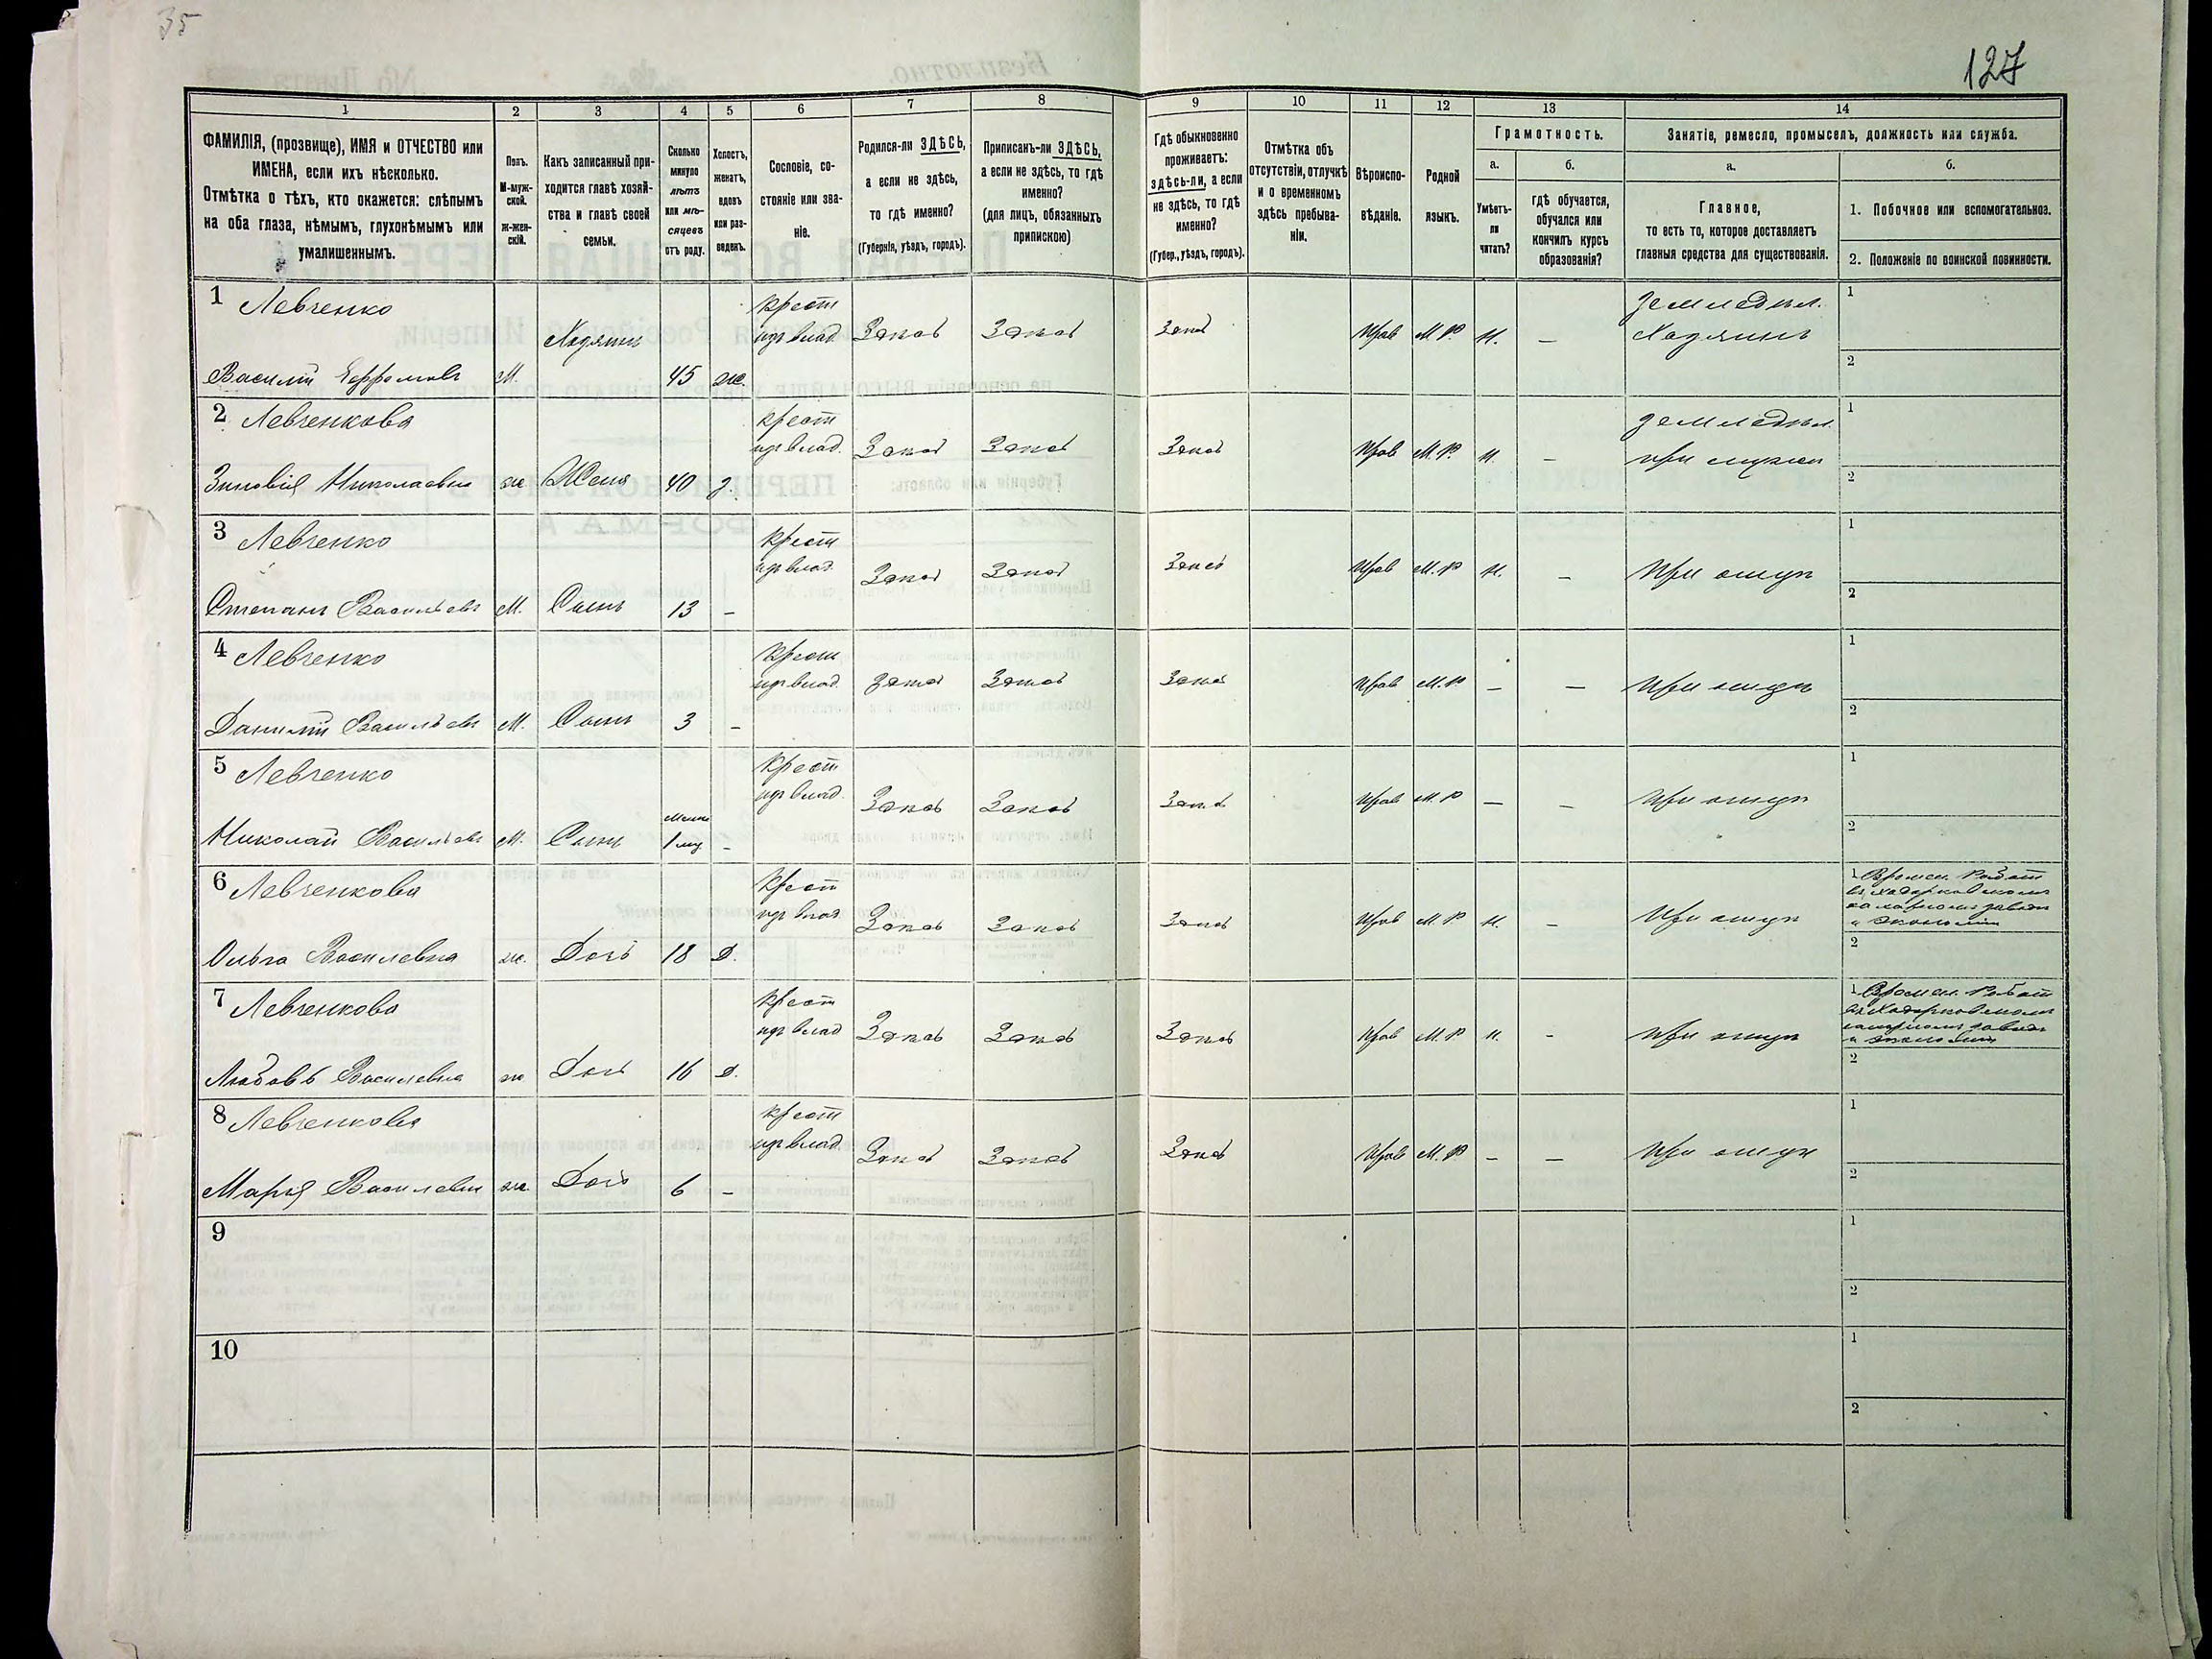 35
127
1 2 3 4 5 6 7 8 9 10 11 12 13 14
ФАМИЛІЯ, (прозвище), ИМЯ и ОТЧЕСТВО или
ИМЕНА, если ихъ нѣсколько.
Отмѣтка о тѣхъ, кто окажется: слѣпымъ
на оба глаза, нѣмымъ, глухонѣмымъ или
умалишеннымъ.
Полъ.
М-муж-
ской.
ж-жен-
скій.
Какъ записанный при-
ходится главѣ хозяй-
ства и главѣ своей
семьи.
Сколько
минуло
лѣтъ
или мѣ-
сяцевъ
отъ роду.
Холостъ,
женатъ,
вдовъ
или раз-
веденъ.
Сословіе, со-
стояніе или зва-
ніе.
Родился-ли ЗДѢСЬ,
а если не здѣсь,
то гдѣ именно?
(Губернія, уѣздъ, городъ).
Приписанъ-ли ЗДѢСЬ,
а если не здѣсь, то гдѣ
именно?
(для лицъ, обязанныхъ
припискою)
Гдѣ обыкновенно
проживаетъ:
здѣсь-ли, а если
не здѣсь, то гдѣ
именно?
(Губер., уѣздъ, городъ).
Отмѣтка объ
отсутствіи, отлучкѣ
и о временномъ
здѣсь пребыва-
ніи.
Вѣроиспо-
вѣданіе.
Родной
языкъ.
Грамотность.
а.
Умѣетъ-
ли
читать?
б.
гдѣ обучается,
обучался или
кончилъ курсъ
образованія?
Занятіе, ремесло, промыселъ, должность или служба.
а.
Главное,
то есть то, которое доставляетъ
главныя средства для существованія.
б.
1. Побочное или вспомогательное.
2. Положеніе по воинской повинности.
1 Левченко
Василій Ефремовъ М. Хозяинъ 45 ж.
крест
изъ влад. Здѣсь Здѣсь Здѣсь Прав М.Р. Н. — земледѣл.
Хозяинъ
1
2
2 Левченкова
Зиновія Николаевна ж Жена 40 з.
крест
изъ влад. Здѣсь Здѣсь Здѣсь Прав М.Р. Н. — земледѣл.
при мужѣ
1
2
3 Левченко
Степанъ Васильевъ М. Сынъ 13 —
крест
изъ влад. Здѣсь Здѣсь Здѣсь Прав М.Р Н. — При отцѣ
1
2
4 Левченко
Даніилъ Васильевъ М. Сынъ 3 —
крест
изъ влад. Здѣсь Здѣсь Здѣсь Прав М.Р — — При отцѣ
1
2
5 Левченко
Николай Васильевъ М. Сынъ 1 —
крест
изъ влад. Здѣсь Здѣсь Здѣсь Прав М.Р — — При отцѣ
1
2
6 Левченкова
Ольга Василевна ж. Дочь 18 д.
крест
изъ влад Здѣсь Здѣсь Здѣсь Прав М.Р Н. — При отцѣ
1 Времен. Работ
въ Ходорковскомъ
сахарномъ заводѣ
и экономіи
2
7 Левченкова
Любовь Василевна ж Дочь 16 д.
крест
изъ влад Здѣсь Здѣсь Здѣсь Прав М.Р Н. - При отцѣ
1 Времен. Работ
въ Ходорковскомъ
сахарномъ заводѣ
и экономіи
2
8 Левченкова
Марія Василевна ж. Дочь 6 —
крест
изъ влад Здѣсь Здѣсь Здѣсь Прав М.Р — — При отцѣ
1
2
9
1
2
10
1
2